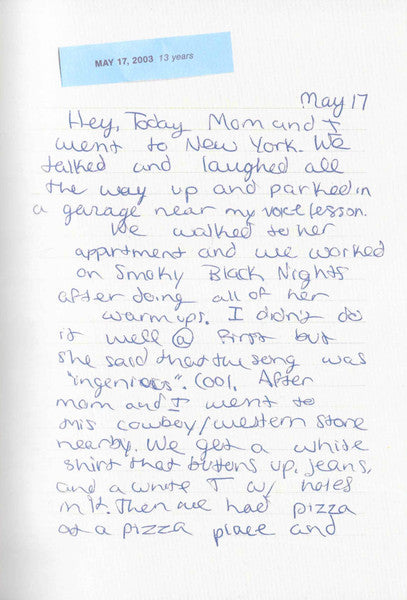 MAY 17, 2003 13 years
May 17
Hey, Today Mom and I
went to New York. We
talked and laughed all
the way up and parked in
a garage near my voice lesson.
We walked to her
appirtment and we worked
on Smoky Black Nights
after doing all of her
warmups. I didn't do
it well @ First but
she said that the song was
"ingenious". Cool. After
mom and I went to
this cowboy/western store
nearby. We get a white
shirt that buttons up, jeans,
and a white T w/ holes
in it. Then we had pizza
at a pizza place and